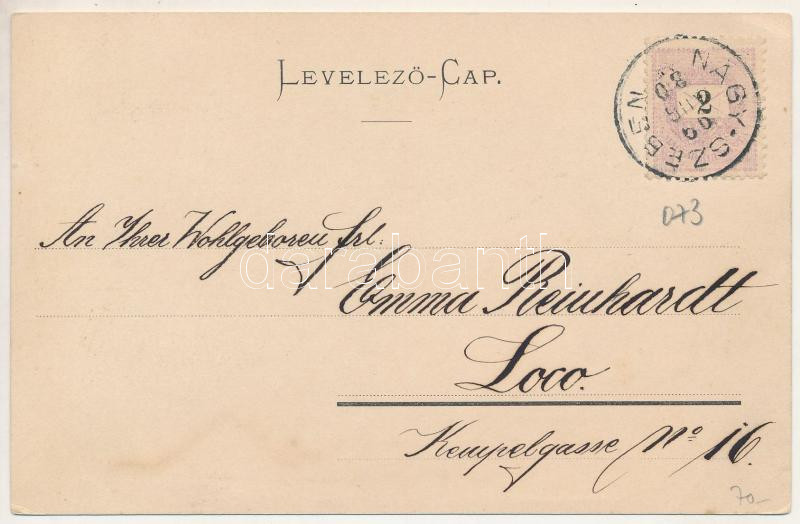 LEVELEZÖ-CAP.
NAGY-SZEBEN
2
D73
An Ihrer Wohlgeboren Frl:
Emma Reinhardt
Loco.
Kempelgasse No 16.
70-
darabanth